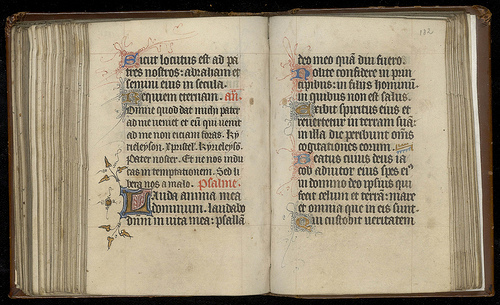 Sicut locutus est ad pa
tres nostros: abraham et
semini eius in secula.
Requiem eternam. añ.
Omne quod dat michi pater
ad me veniet et eū qui venit
ad me non eiciam foras. Ky
rieleyson. Xp̄eleỹ. Kyrieleyso.
Pater noster. Et ne nos indu
cas in temptationem. Sed li
bera nos a malo. Psalme.
Lauda anima mea
dominum. laudabo
dñm in vita mea: psallā
132
deo meo quā diu fuero.
Nolite confidere in prin
cipibus: in filiis hominū
in quibus non est salus.
Exibit spiritus eius et
revertetur in terram suā:
in illa die peribunt oēs
cogitationes eorum.
Beatus cuius deus ia
cob adiutor eius spes eiꝰ
in domino deo ipsius qui
fecit celum et terrā: mare
et omnia que in eis sunt.
Qui custodit veritatem